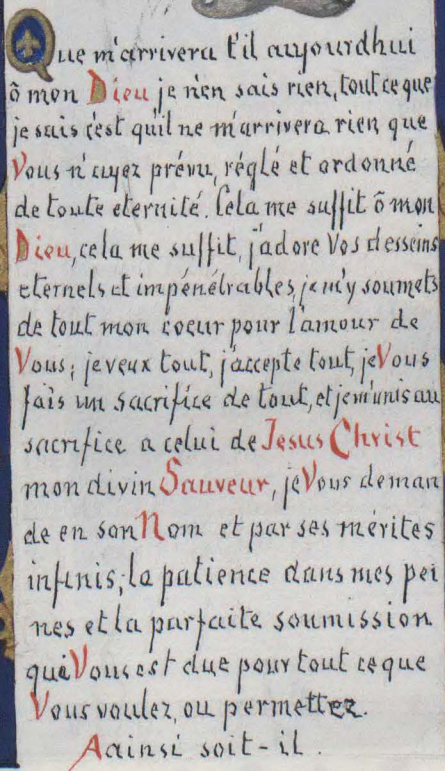 Que m'arrivera t'il aujourdhui
ô mon Dieu je n'en sais rien, tout ce que
je sais c'est qu'il ne m'arrivera rien que
Vous n'ayez prévu, réglé et ordonné
de toute eternité. Cela me suffit ô mon
Dieu, cela me suffit, j'adore Vos desseins
eternels et impénétrables, je m'y soumets
de tout mon coeur pour l'amour de
Vous; je veux tout, j'accepte tout, je Vous
fais un sacrifice de tout, et je m'unis au
sacrifice a celui de Jesus Christ
mon divin Sauveur, je Vous deman
de en son Nom et par ses mérites
infinis, la patience dans mes pei
nes et la parfaite soumission
qui Vous est due pour tout ce que
Vous voulez, ou permettez.
Aainsi soit-il.